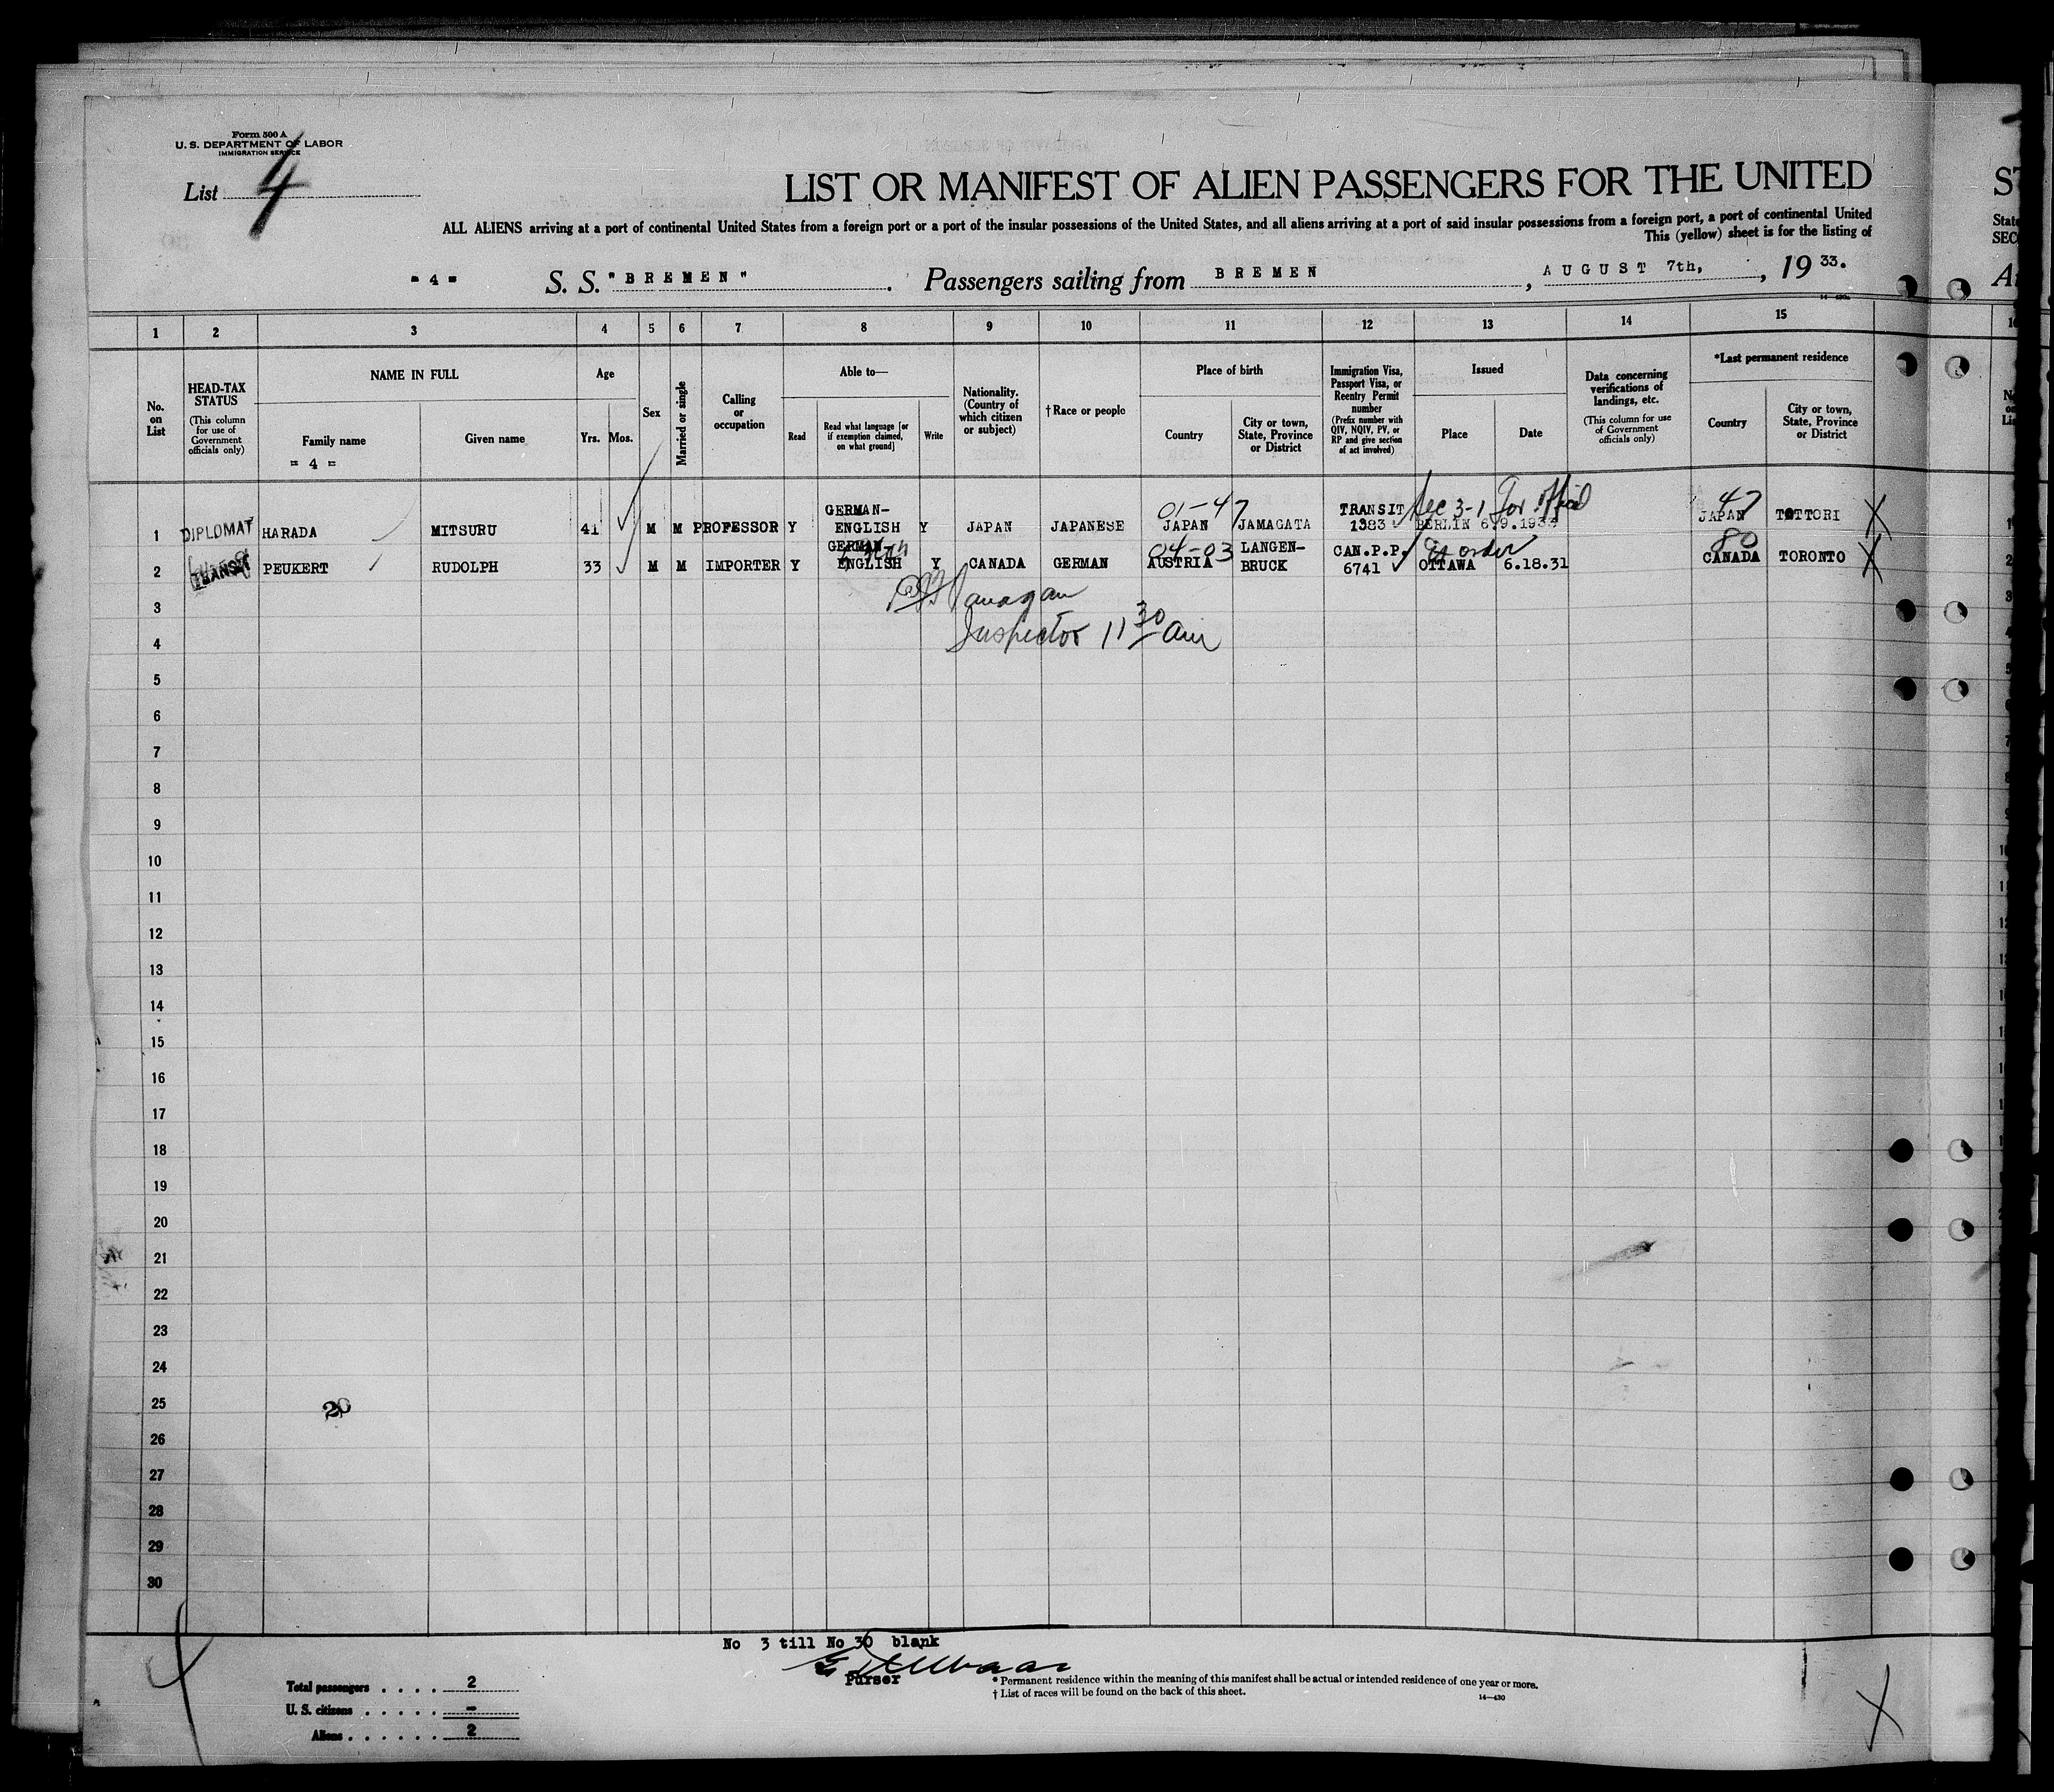 Form 500 A
U. S. DEPARTMENT OF LABOR
IMMIGRATION SERVICE
List 4
LIST OR MANIFEST OF ALIEN PASSENGERS FOR THE UNITED
ALL ALIENS arriving at a port of continental United States from a foreign port or a port of the insular possessions of the United States, and all aliens arriving at a port of said insular possessions from a foreign port, a port of continental United
This (yellow) sheet is for the listing of
= 4 = S. S. "BREMEN". Passengers sailing from BREMEN, AUGUST 7th, , 19 33.
1 2 3 4 5 6 7 8 9 10 11 12 13 14 15
No. on List
HEAD-TAX STATUS
(This column for use of Government officials only)
NAME IN FULL
Family name
= 4 =
Given name
Age
Yrs. Mos.
Sex
Married or single
Calling or occupation
Able to—
Read
Read what language [or if exemption claimed, on what ground]
Write
Nationality. (Country of which citizen or subject)
† Race or people
Place of birth
Country
City or town, State, Province or District
Immigration Visa, Passport Visa, or Reentry Permit number
(Prefix number with QIV, NQIV, PV, or RP and give section of act involved)
Issued
Place
Date
Data concerning verifications of landings, etc.
(This column for use of Government officials only)
*Last permanent residence
Country
City or town, State, Province or District
01-47 Sec 3-1 47
1 DIPLOMAT HARADA MITSURU 41 M M PROFESSOR Y GERMAN-ENGLISH Y JAPAN JAPANESE JAPAN JAMAGATA TRANSIT 1383 BERLIN 6.9.1933 JAPAN TOTTORI X
04-03 80
2 TRANSIT PEUKERT RUDOLPH 33 M M IMPORTER Y GERMAN ENGLISH Y CANADA GERMAN AUSTRIA LANGEN-BRUCK CAN.P.P. 6741 OTTAWA 6.18.31 CANADA TORONTO X
3
Inspector 11 30 am
4
5
6
7
8
9
10
11
12
13
14
15
16
17
18
19
20
21
22
23
24
25
26
27
28
29
30
No 3 till No 30 blank
Purser
Total passengers . . . . 2
U. S. citizens . . . . . -
Aliens . . . . . . 2
* Permanent residence within the meaning of this manifest shall be actual or intended residence of one year or more.
† List of races will be found on the back of this sheet.
14—430
X